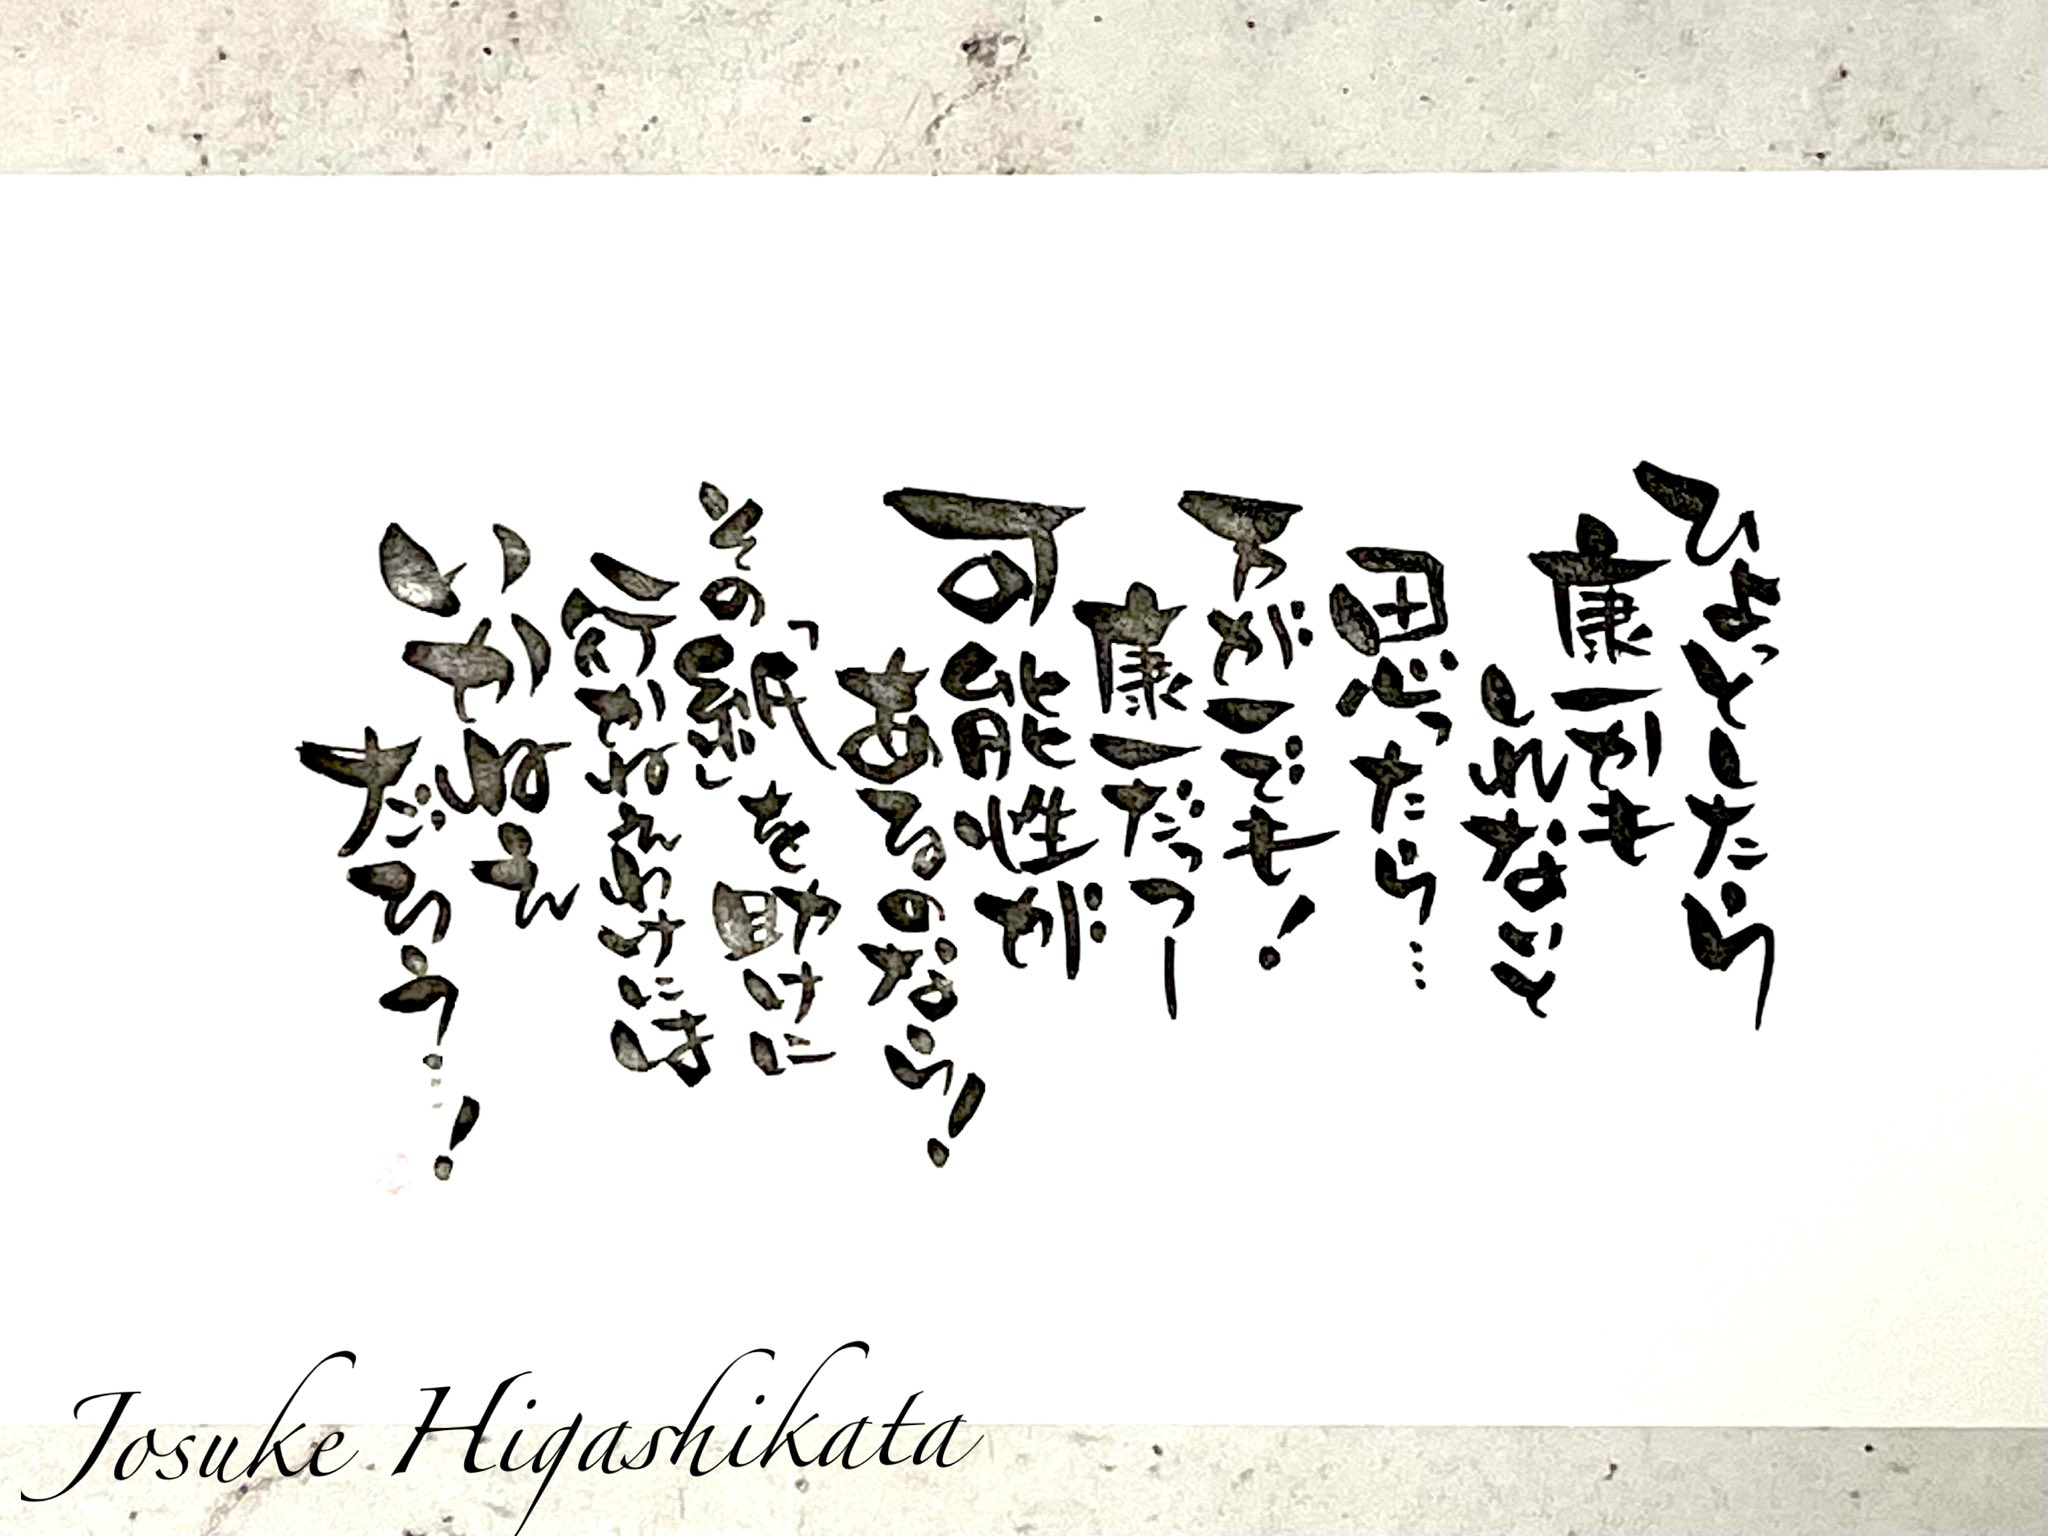 ひょっとしたら
康一かも
しれないと
思ったら…
万が一でも！
康一だっつー
可能性が
あるのなら！
その「紙」を助けに
行かねえわけには
いかねえ
だろう…！
Josuke Higashikata